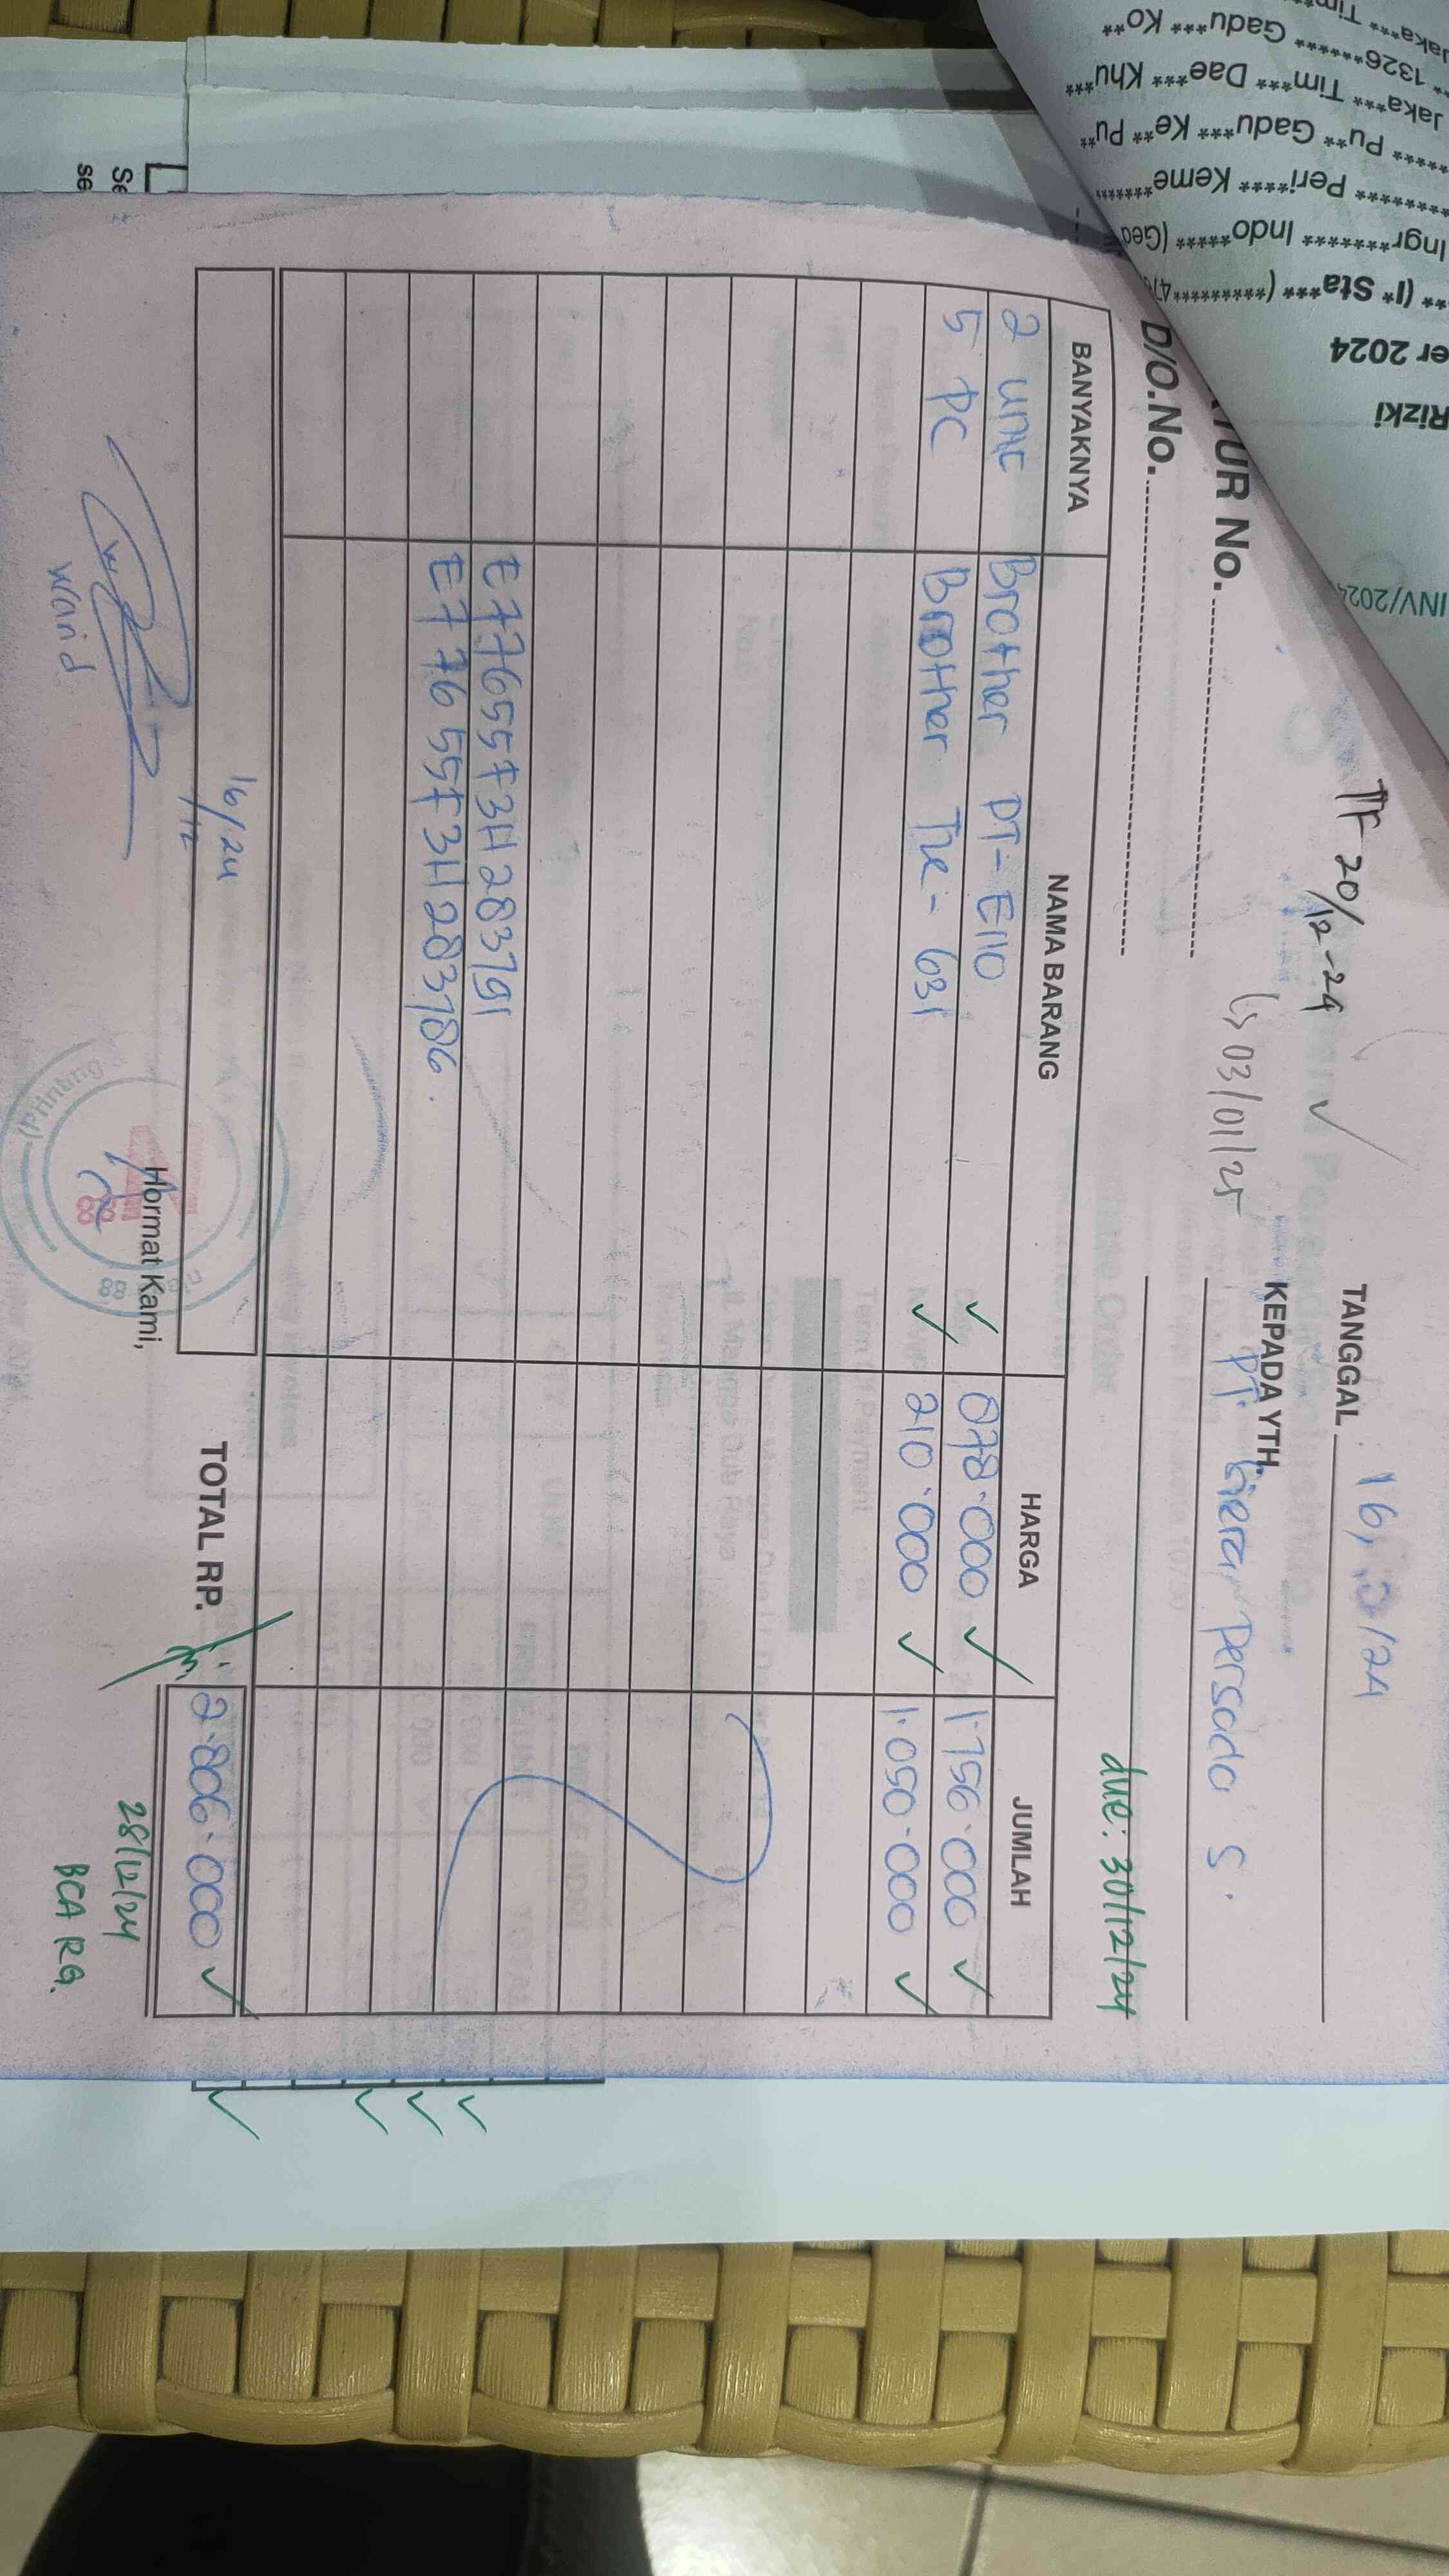 TANGGAL
KEPADA YTH.
PT. Persada S.
TF 20/12-24
↳ 03/01/25
TUR No.
D/O.No.
due: 30/12/24
BANYAKNYA NAMA BARANG HARGA JUMLAH
2 unit Brother PT-E110 878.000 1.756.000
5 PC Brother Tze-631 210.000 1.050.000
E77655F3H283791
E77655F3H283786.
16/12/24
TOTAL RP. 2.806.000
Hormat Kami,
Warid
28/12/24
BCA RG.
(Printing
88
88
Se
se
INV/2024
Rizki
er 2024
** (I* Sta*** (*********47
Ingr******* Indo****** (Ged
********* Peri**** Keme*******
***** Pu** Gadu*** Ke** Pu**
Jaka*** Tim*** Dae*** Khu***
** 1326******* Gadu*** Ko**
Jaka*** Tim**